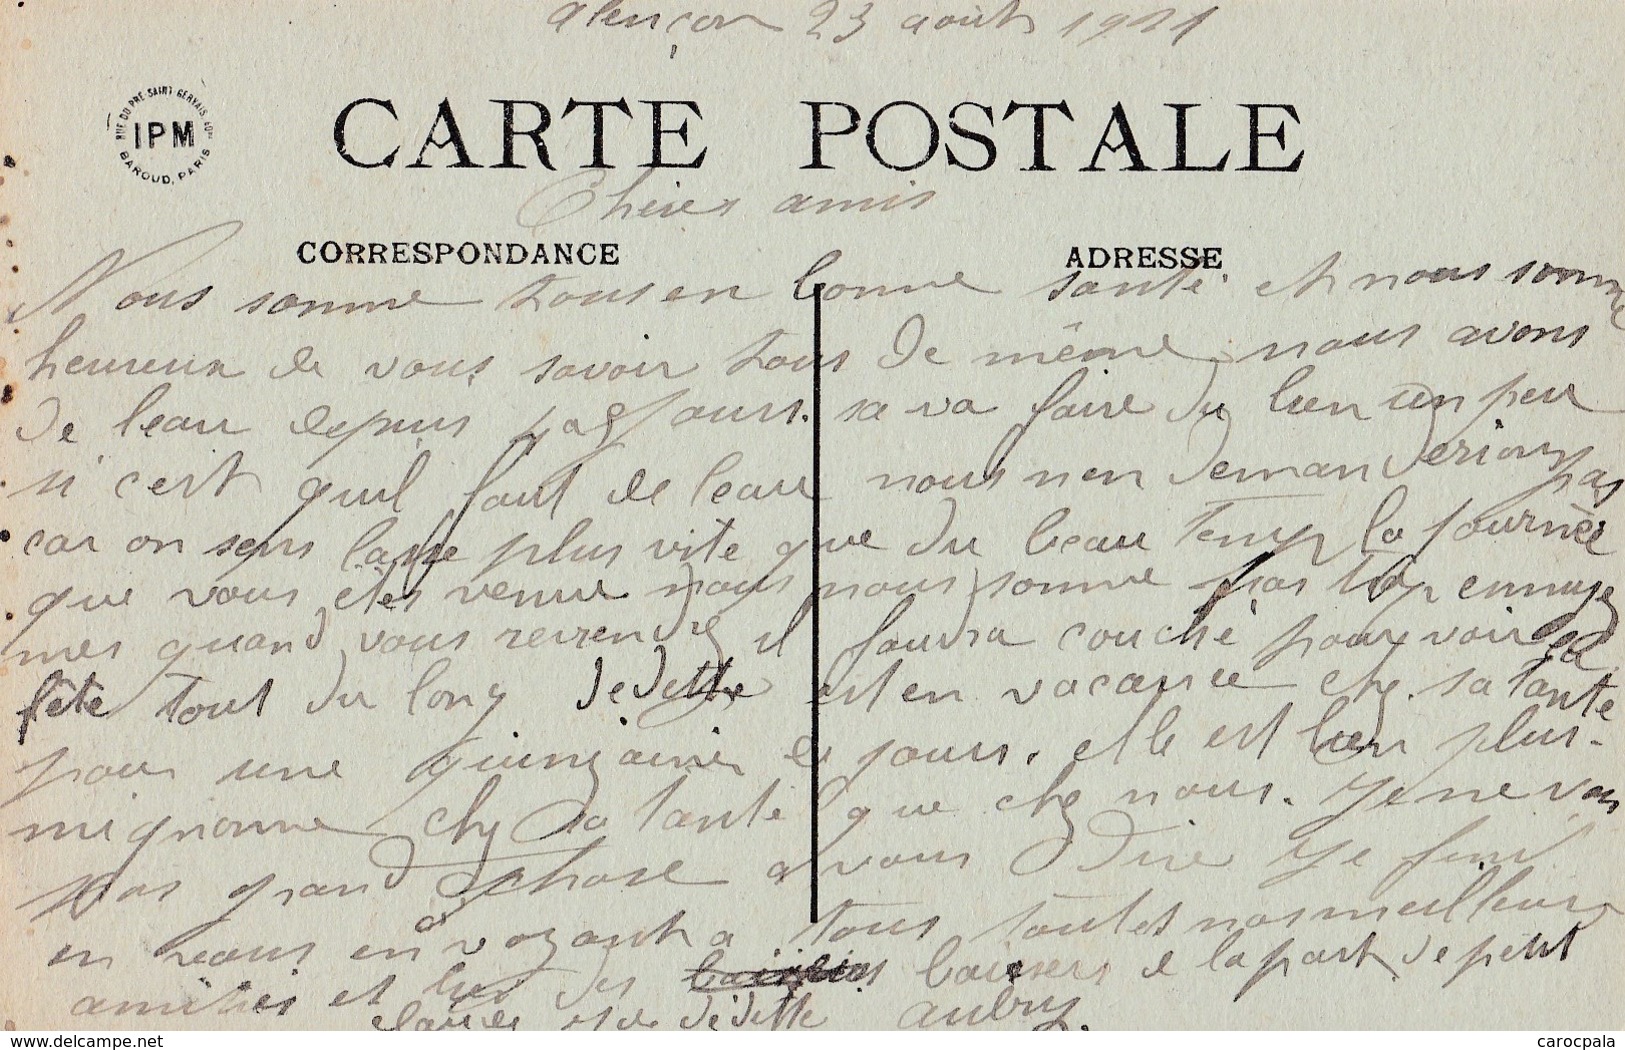 alençon 23 août 1921
RUE DU PRE-SAINT GERVAIS
IPM
BAROUD, PARIS
CARTE POSTALE
Chères amis
CORRESPONDANCE
ADRESSE
Nous somme tous en bonne santé et nous somme
heureux de vous savoir tous de même nous avons
de leau depuis jours. sa va faire du bien un peu
si cest quil faut de leau nous nen demanderions pas
car on sens lasse plus vite que du beau temp la journèe
que vous etes venue nous nous somme pas trop ennuye
mes quand vous reviendre il faudra couché pour voir la
fête tout du long dedette est en vacance chez sa tante
pour une quinzaine de jours. elle est bien plus-
mignonne chez sa tante que chez nous. Je ne vois
pas grand chose a vous dire je fini
en vous envoyant a tous toutes nos meilleurs
amitiés et des baisers de la part de petit
dedette aubry.
www.delcampe.net
carocpala